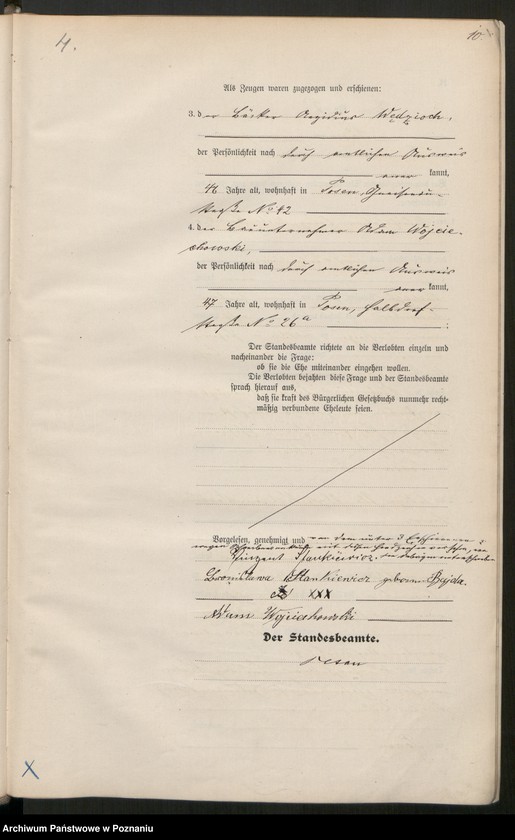 4.
10
Als Zeugen waren zugezogen und erschienen:
3. der Bäcker Aegidius Wędzioch,
der Persönlichkeit nach durch amtlichen Ausweis
aner kannt,
44 Jahre alt, wohnhaft in Posen, Gneisenau-
straße No 42
4. der Bauunternehmer Adam Wojcie-
chowski,
der Persönlichkeit nach durch amtlichen Ausweis
aner kannt,
47 Jahre alt, wohnhaft in Posen, Halbdorf-
straße No 26a ;
Der Standesbeamte richtete an die Verlobten einzeln und
nacheinander die Frage:
ob sie die Ehe miteinander eingehen wollen.
Die Verlobten bejahten diese Frage und der Standesbeamte
sprach hierauf aus,
daß sie kraft des Bürgerlichen Gesetzbuchs nunmehr recht-
mäßig verbundene Eheleute seien.
Vorgelesen, genehmigt und von dem unter 3 Erschienenen
wegen mit Handzeichen versehen, von
den übrigen unterschrieben
Vinzent Stankiewicz.
Bronisława Stankiewicz geborene Bajda.
XXX
Adam Wojciechowski
Der Standesbeamte.
X
Archiwum Państwowe w Poznaniu